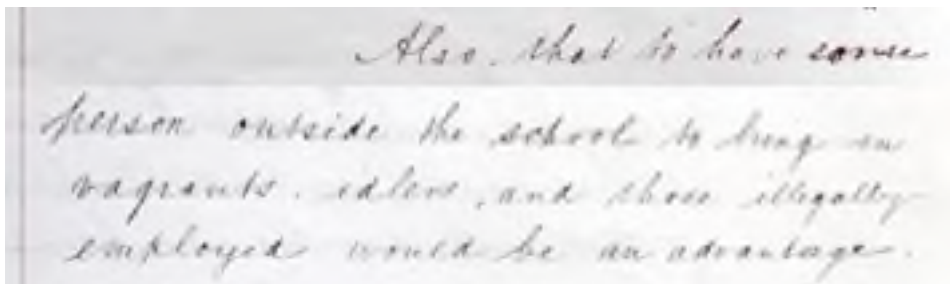 Also, that to have some
person outside the school to bring in
vagrants, idlers, and those illegally
employed would be an advantage.